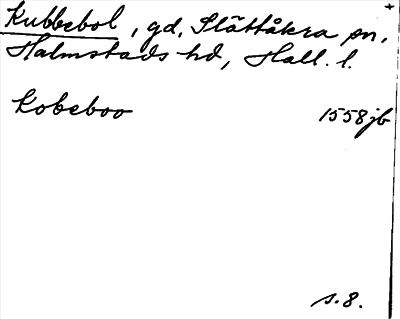 Kubbebol, gd, Slättåkra sn,
Halmstads hd, Hall. l.
Kobeboo 1558 jb
s. 8.